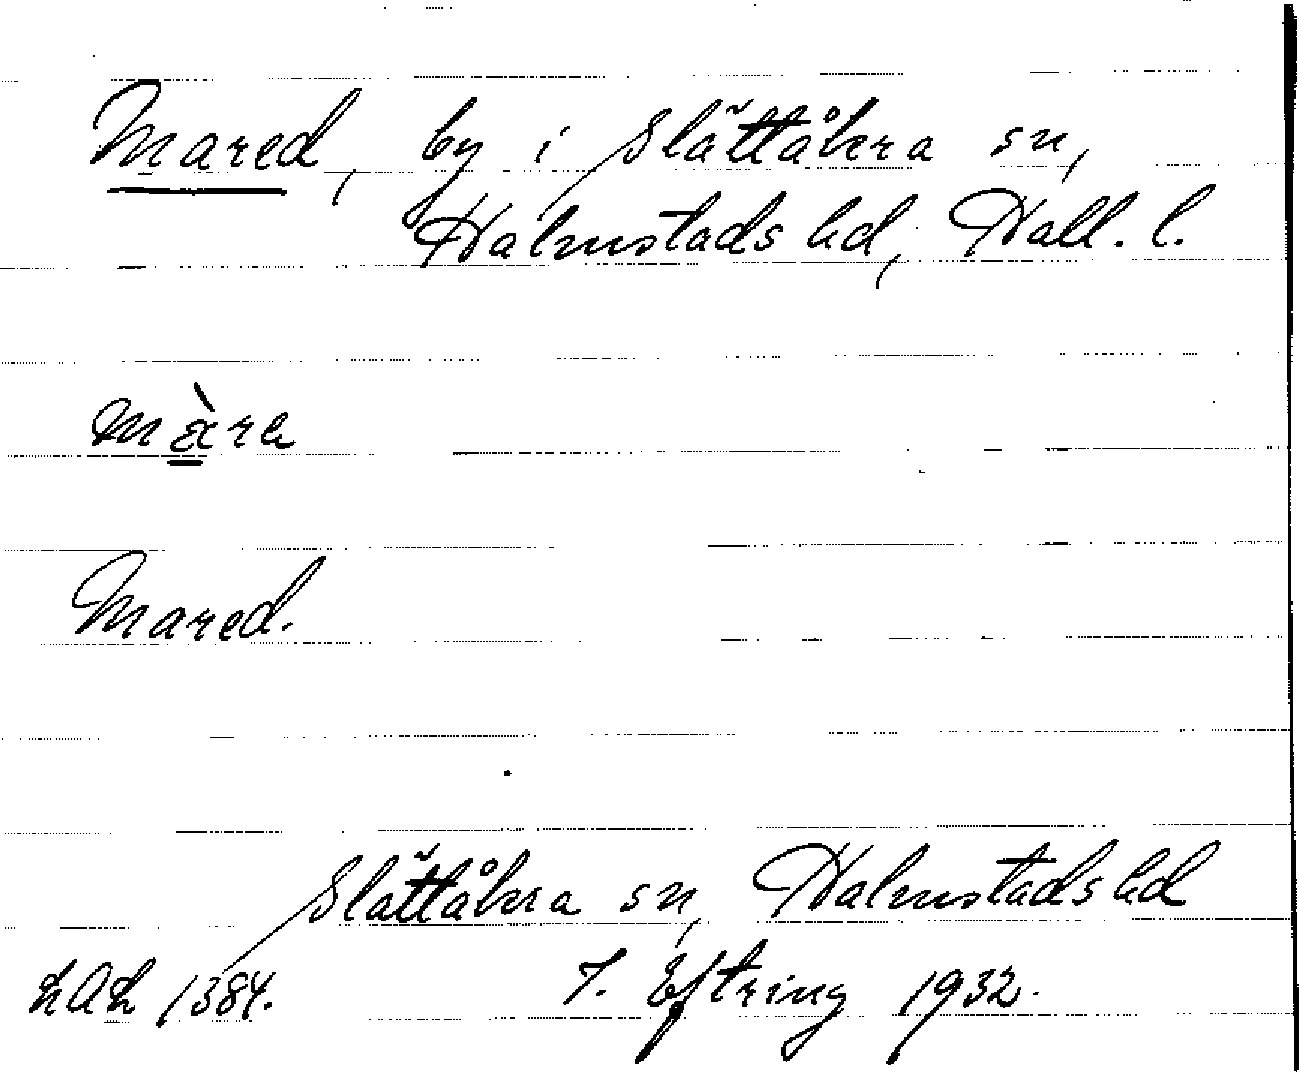 Mared, by i Slättåkra sn,
Halmstads hd, Hall. l.
màre
Mared.
Slättåkra sn, Halmstads hd
LAL 1384. T. Eftring 1932.